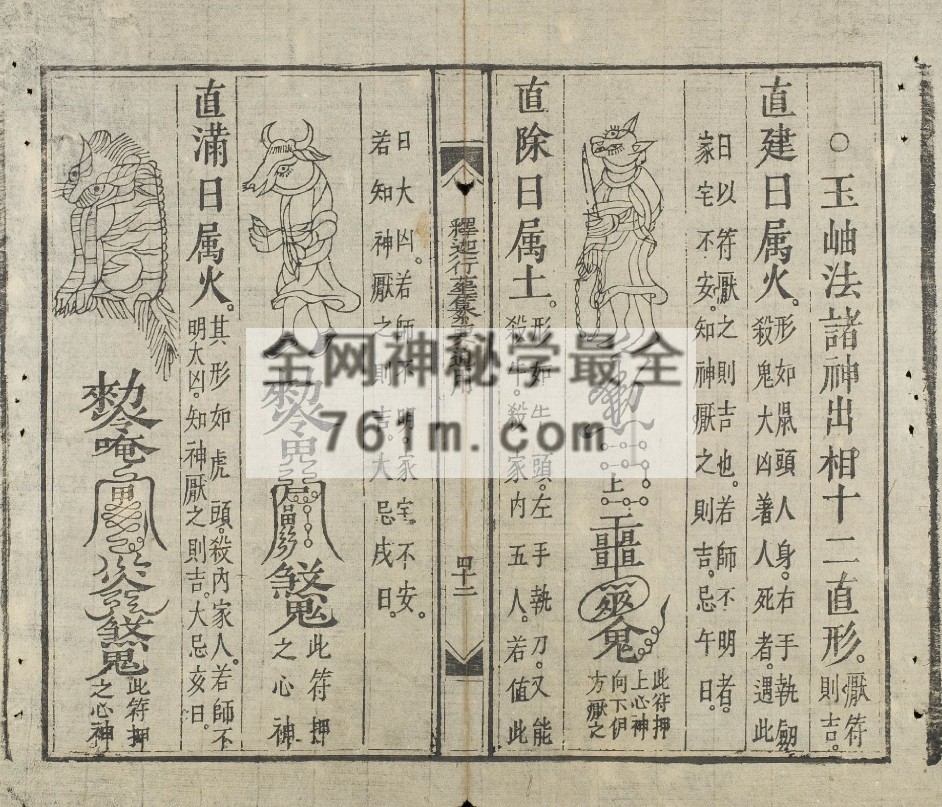 ○玉岫法諸神出相十二直形。厭符
則吉。
直建日属火。形如鼠頭人身。右手執劔
殺鬼大凶著人死者。遇此
日以符厭之則吉也。若師不明者。
家宅不安。知神厭之則吉。忌午日。
上
鬼
此符押
上心神
向下伊
方厭之
直除日属土。形如牛頭。左手執刀。又能
殺牛。殺家内五人。若值此
釋迦行
四十二
日大凶。若師不明。家宅不安。
若知神厭之則吉。大忌戌日。
此符押
之心神
直滿日属火。其形如虎頭。殺內家人。若師不
明大凶。知神厭之則吉。大忌亥日。
唵
此符押
之心神
全网神秘学最全
76 m.com